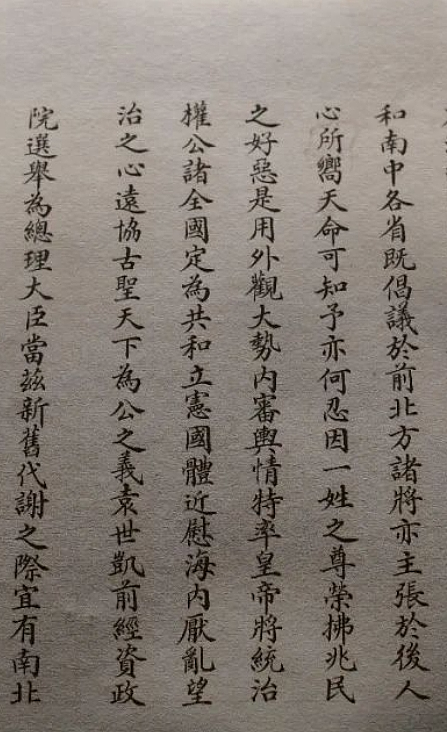 和南中各省既倡議於前北方諸將亦主張於後人
心所嚮天命可知予亦何忍因一姓之尊榮拂兆民
之好惡是用外觀大勢內審輿情特率皇帝將統治
權公諸全國定為共和立憲國體近慰海內厭亂望
治之心遠協古聖天下為公之義袁世凱前經資政
院選舉為總理大臣當茲新舊代謝之際宜有南北